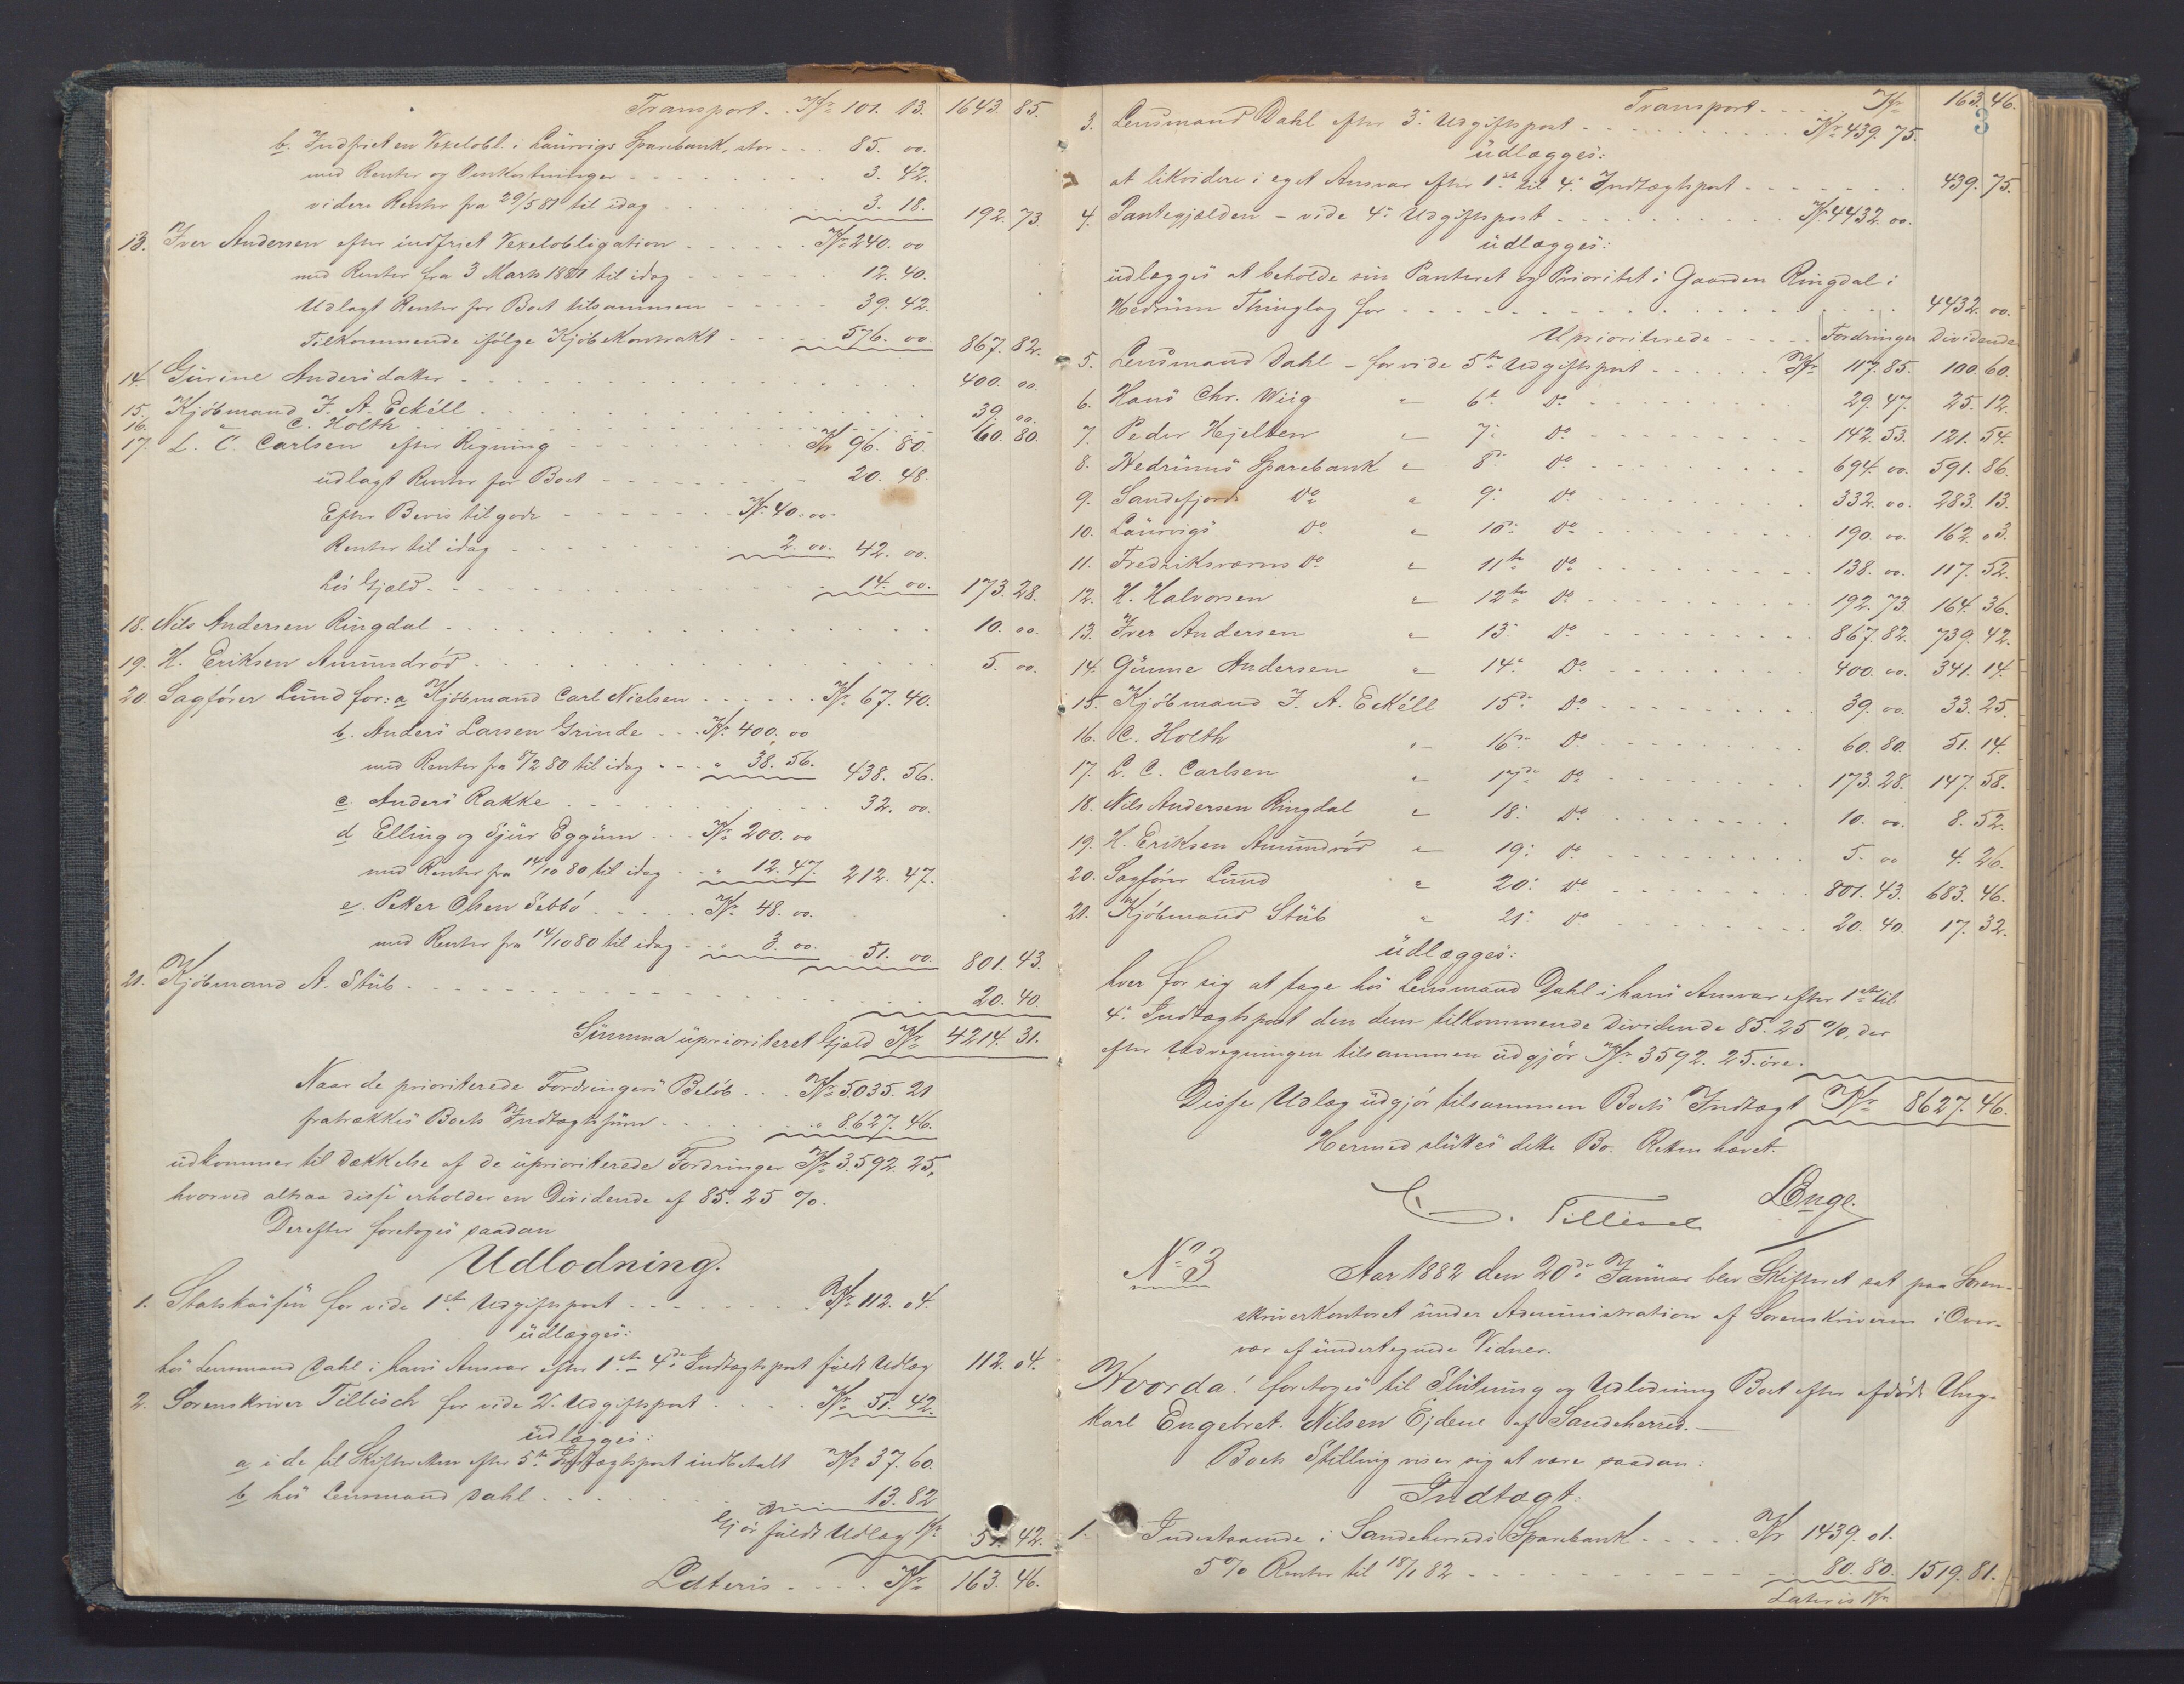 Transport . . Kr. 101. 13. 1643. 85.
b. Indfriet en Vexelobl. i Laurvigs Sparebank, stor - - - 85. 00.
med Renter og Omkostninger - - - - - - - - 3. 42.
videre Renter fra 29/5 81 til idag - - - - - - - 3. 18. 192. 73.
13. Iver Andersen efter indfriet Vexelobligation . . . . . Kr. 240. 00
med Renter fra 3 Marts 1881 til idag - - - - - - 12. 40.
Udlagt Renter for Boet tilsammen - - - - - 39. 42.
Tilkommende ifølge Kjøbekontrakt - - - - 576. 00. 867. 82.
14. Gurine Andersdatter - - - - - - - - - - 400. 00.
15. Kjøbmand J. A. Eckéll - - - - - - - - - 39. 00.
16. " C. Holth - - - - - - - - - - 60. 80.
17. L. C. Carlsen efter Regning - - - - - - Kr 96. 80.
udlagt Renter for Boet - - - - - - - - 20. 48.
Efter Bevis tilgode - - - - - - Kr. 40. 00.
Renter til idag - - - - - - - - 2. 00. 42. 00.
Løs Gjæld - - - - - - - - - - - 14. 00. 173. 28.
18. Nils Andersen Ringdal - - - - - - - - - - 10. 00.
19. H. Eriksen Amundrød - - - - - - - - - - 5. 00.
20. Sagfører Lund for: a Kjøbmand Carl Nielsen - - - - - Kr. 67. 40.
b. Anders Larsen Grinde - - - Kr. 400. 00
med Renter fra 8/2 80 til idag - - - " 38. 56. 438. 56.
c. Anders Rakke - - - - - - - - - 32. 00.
d Elling og Sjur Eggum - - - Kr. 200. 00
med Renter fra 14/10 80 til idag - - " 12. 47. 212. 47.
e. Peter Olsen Sebbø - - - - Kr. 48. 00.
med Renter fra 14/10 80 til idag - - " 3. 00. 51. 00. 801. 43.
21. Kjøbmand A. Stub - - - - - - - - - - - 20. 40.
Summa uprioriteret Gjæld Kr. 4214. 31.
Naar de prioriterede Fordringers Beløb . . . Kr. 5035. 21
fratrækkes Boets Indtægtssum - - - - - " 8627. 46.
udkommer til Dækkelse af de uprioriterede Fordringer Kr. 3.592. 25,
hvorved altsaa disse erholder en Dividende af 85. 25 %.
Derefter foretoges saadan
Udlodning.
1. Statskassen for vide 1ste Udgiftspost - - - - - - Kr. 112. 04.
udlægges:
hos Lensmand Dahl i hans Ansvar efter 1ste - 4de Indtægtspost fuldt Udlæg 112. 04.
2. Sorenskriver Tillisch for vide 2. Udgiftspost - - - - Kr. 51. 42.
udlægges:
a i de til Skifteretten efter 5te Indtægtspost indbetalt Kr. 37. 60.
b hos Lensmand Dahl - - - - - - 13. 82
Gjør fuldt Udlæg Kr. 51. 42.
Lateris - - - - Kr. 163. 46.
Transport - - - - Kr. 163. 46.
3
3. Lensmand Dahl efter 3. Udgiftspost - - - - - - - - Kr. 439. 75.
udlægges:
at likvidere i eget Ansvar efter 1ste til 4. Indtægtspost - - - - - - - 439. 75.
4. Pantegjælden - vide 4. Udgiftspost - - - - - - - - Kr. 4432. 00.
udlægges:
udlægges at beholde sin Panteret og Prioritet i Gaarden Ringdal i
Hedrum Thinglag for - - - - - - - - - - - - - 4432. 00.
Uprioriterede - - - - Fordringer Dividende
5. Lensmand Dahl - for vide 5te Udgiftspost - - - - - - Kr. 117. 85. 100. 60.
6. Hans Chr. Wiig " 6te Do - - - - - - - - 29. 47. 25. 12.
7. Peder Hjelten " 7. Do - - - - - - - - 142. 53. 121. 54.
8. Hedrums Sparebank " 8de Do - - - - - - - - 694. 00. 591. 86.
9. Sandefjords Do " 9. Do - - - - - - - - 332. 00. 283. 13.
10. Laurvigs Do " 10de Do - - - - - - - - 190. 00. 162. 03.
11. Fredriksværns Do " 11te Do - - - - - - - - 138. 00. 117. 52.
12. H. Halvorsen " 12te Do - - - - - - - - 192. 73. 164. 36.
13. Iver Andersen " 13. Do - - - - - - - - 867. 82. 739. 42.
14. Gurine Andersen " 14. Do - - - - - - - - 400. 00. 341. 14.
15. Kjøbmand J. A. Eckéll 15de Do - - - - - - - - 39. 00. 33. 25.
16. C. Holth " 16de Do - - - - - - - - 60. 80. 51. 14.
17. L. C. Carlsen " 17de Do - - - - - - - - 173. 28. 147. 58.
18. Nils Andersen Ringdal " 18. Do - - - - - - - - 10. 00. 8. 52.
19. H. Eriksen Amundrød " 19. Do - - - - - - - - 5. 00 4. 26.
20. Sagfører Lund " 20. Do - - - - - - - - 801. 43. 683. 46.
21. Kjøbmand Stub " 21. Do - - - - - - - - 20. 40. 17. 32.
udlægges:
hver for sig at tage hos Lensmand Dahl i hans Ansvar efter 1ste til
4. Indtægtspost den dem tilkommende Dividende 85. 25 %, der
efter Udregningen tilsammen udgjør Kr. 3592. 25. øre.
Disse Udlæg udgjør tilsammen Boets Indtægt Kr. 8627. 46.
Hermed sluttes dette Bo. Retten hævet.
C. Tillisch Bugge.
No. 3 Aar 1882 den 20de Januar blev Skifteret sat paa Soren-
skriverkontoret under Administration af Sorenskriveren i Over-
vær af undertegnede Vidner.
Hvorda! foretoges til Slutning og Udlodning Boet efter afdøde Ung-
karl Engebret Nilsen Ejdene af Sandeherred. -
Boets Stilling viser sig at være saadan:
Indtægt:
1. Indestaaende i Sandeherreds Sparebank - - - - - Kr 1439. 01.
5 % Renter til 18/1 82 - - - - - - - - - - 80. 80. 1519. 81.
Lateris Kr.